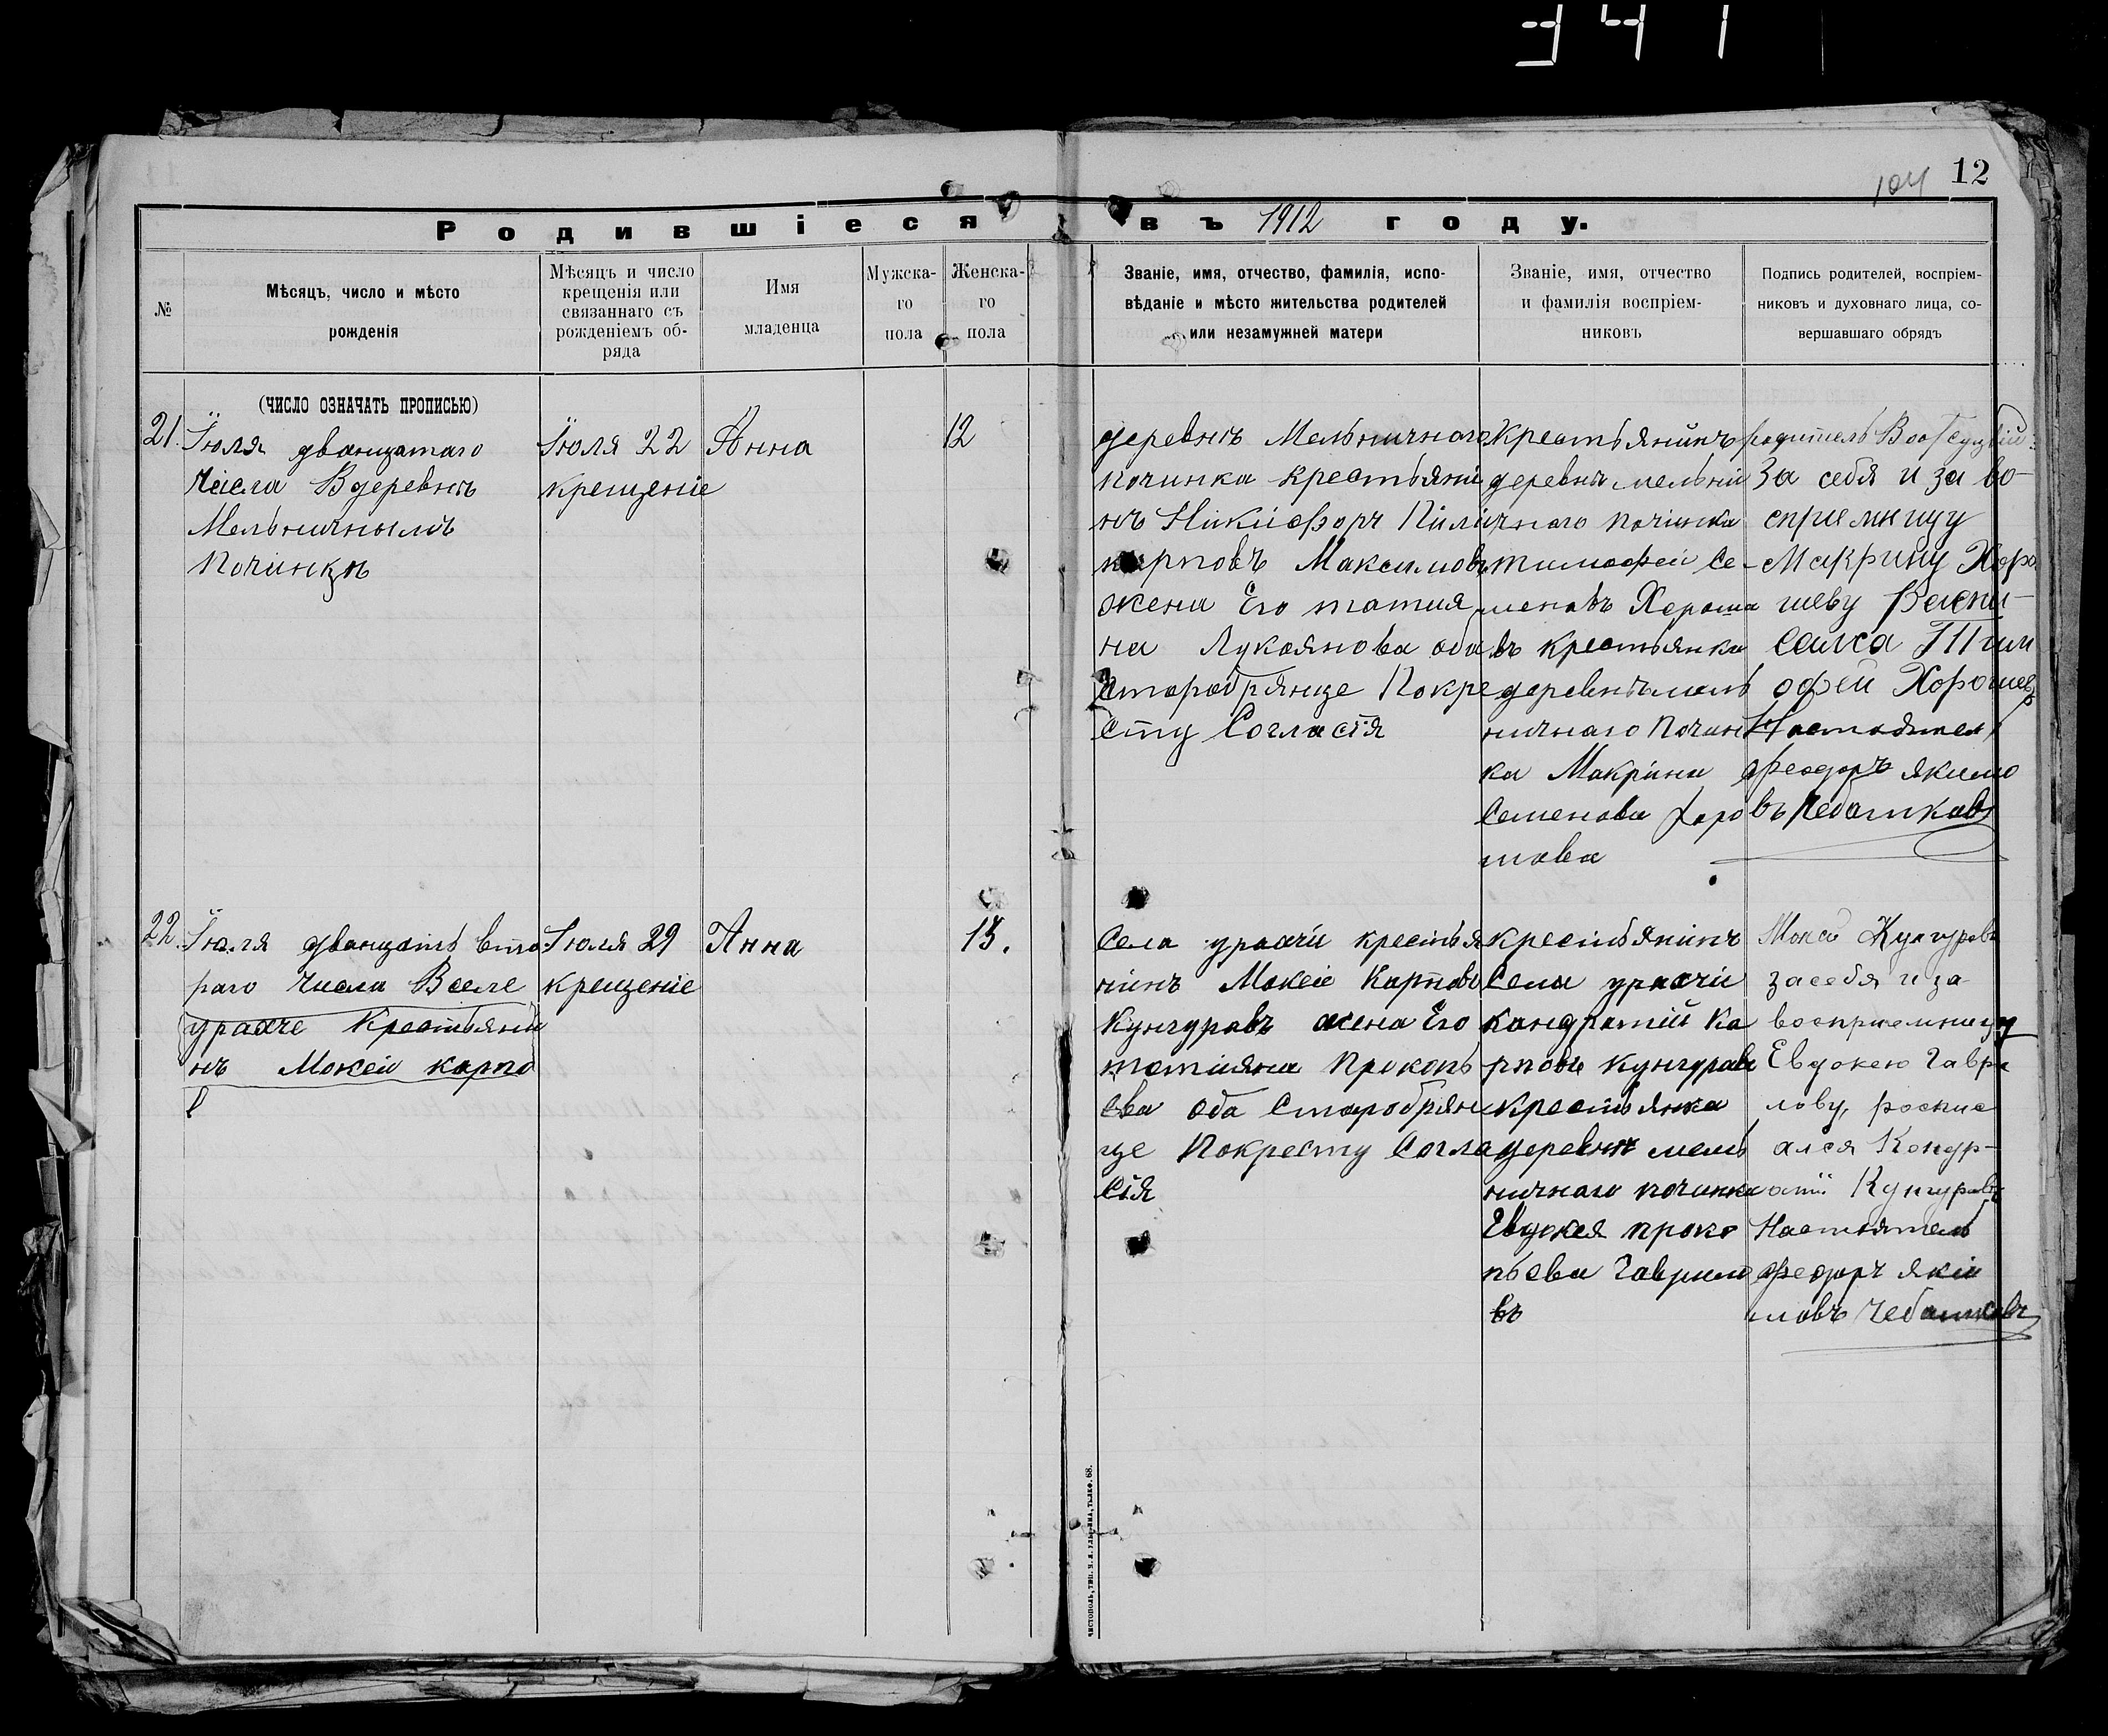 341
104 12
Родившіеся въ 1912 году.
№
Мѣсяцъ, число и мѣсто
рожденія
Мѣсяцъ и число
крещенія или
связаннаго съ
рожденіемъ об-
ряда
Имя
младенца
Мужска-
го
пола
Женска-
го
пола
Званіе, имя, отчество, фамилія, испо-
вѣданіе и мѣсто жительства родителей
или незамужней матери
Званіе, имя, отчество
и фамилія воспріем-
никовъ
Подпись родителей, воспріем-
никовъ и духовнаго лица, со-
вершавшаго обрядъ
(ЧИСЛО ОЗНАЧАТЬ ПРОПИСЬЮ)
21.
Іюля дванцатаго
числа Вдеревнѣ
Мельничнымъ
Починкѣ
Іюля 22
крещеніе
Анна
12
деревнѣ Мельничнаго
починка крестьяни
нъ Никифоръ Поли
карповъ Максимовъ
жена Его татия
на Лукоянова оба
Старобрянце Покре
сту Согласія
Крестьянинъ
деревнѣ мельни
чнаго починка
тимофей Се-
меновъ Хероша
въ крестьянка
деревнѣ мель
ничнаго Почин
ка Макрина
Семенова Харо
шава
родитель
За себя и за во-
сприемницу
Макрину Хоро
шеву Роспи-
салса Тим
офей Хорошевъ
Настоятель
Феодоръ Якимо
въ Чебатковъ
22.
Іюля дванцать вто
раго числа Вселе
урахче Крестьяни
нъ Мокей карпо
в
Іюля 29
крещеніе
Анна
13.
Села урахчи крестья
нинъ Мокеіе Карповъ
Кунгуравъ жена Его
татияна Прокопь
ева оба Старобрян
це Покресту Согла
сія
крестьянинъ
Села урахчи
кандратій Ка
рповъ кунгуравъ
крестьянка
деревнѣ мель
ничнаго починка
Евдокея проко
пьева Гаврило
въ
Мокей Кунгуровъ
засебя и за
восприемницу
Евдокею Гаври
лову, роспис
ался Кондр-
атій Кунгуравъ
Настоятель
Феодоръ Яки
мовъ Чебатковъ